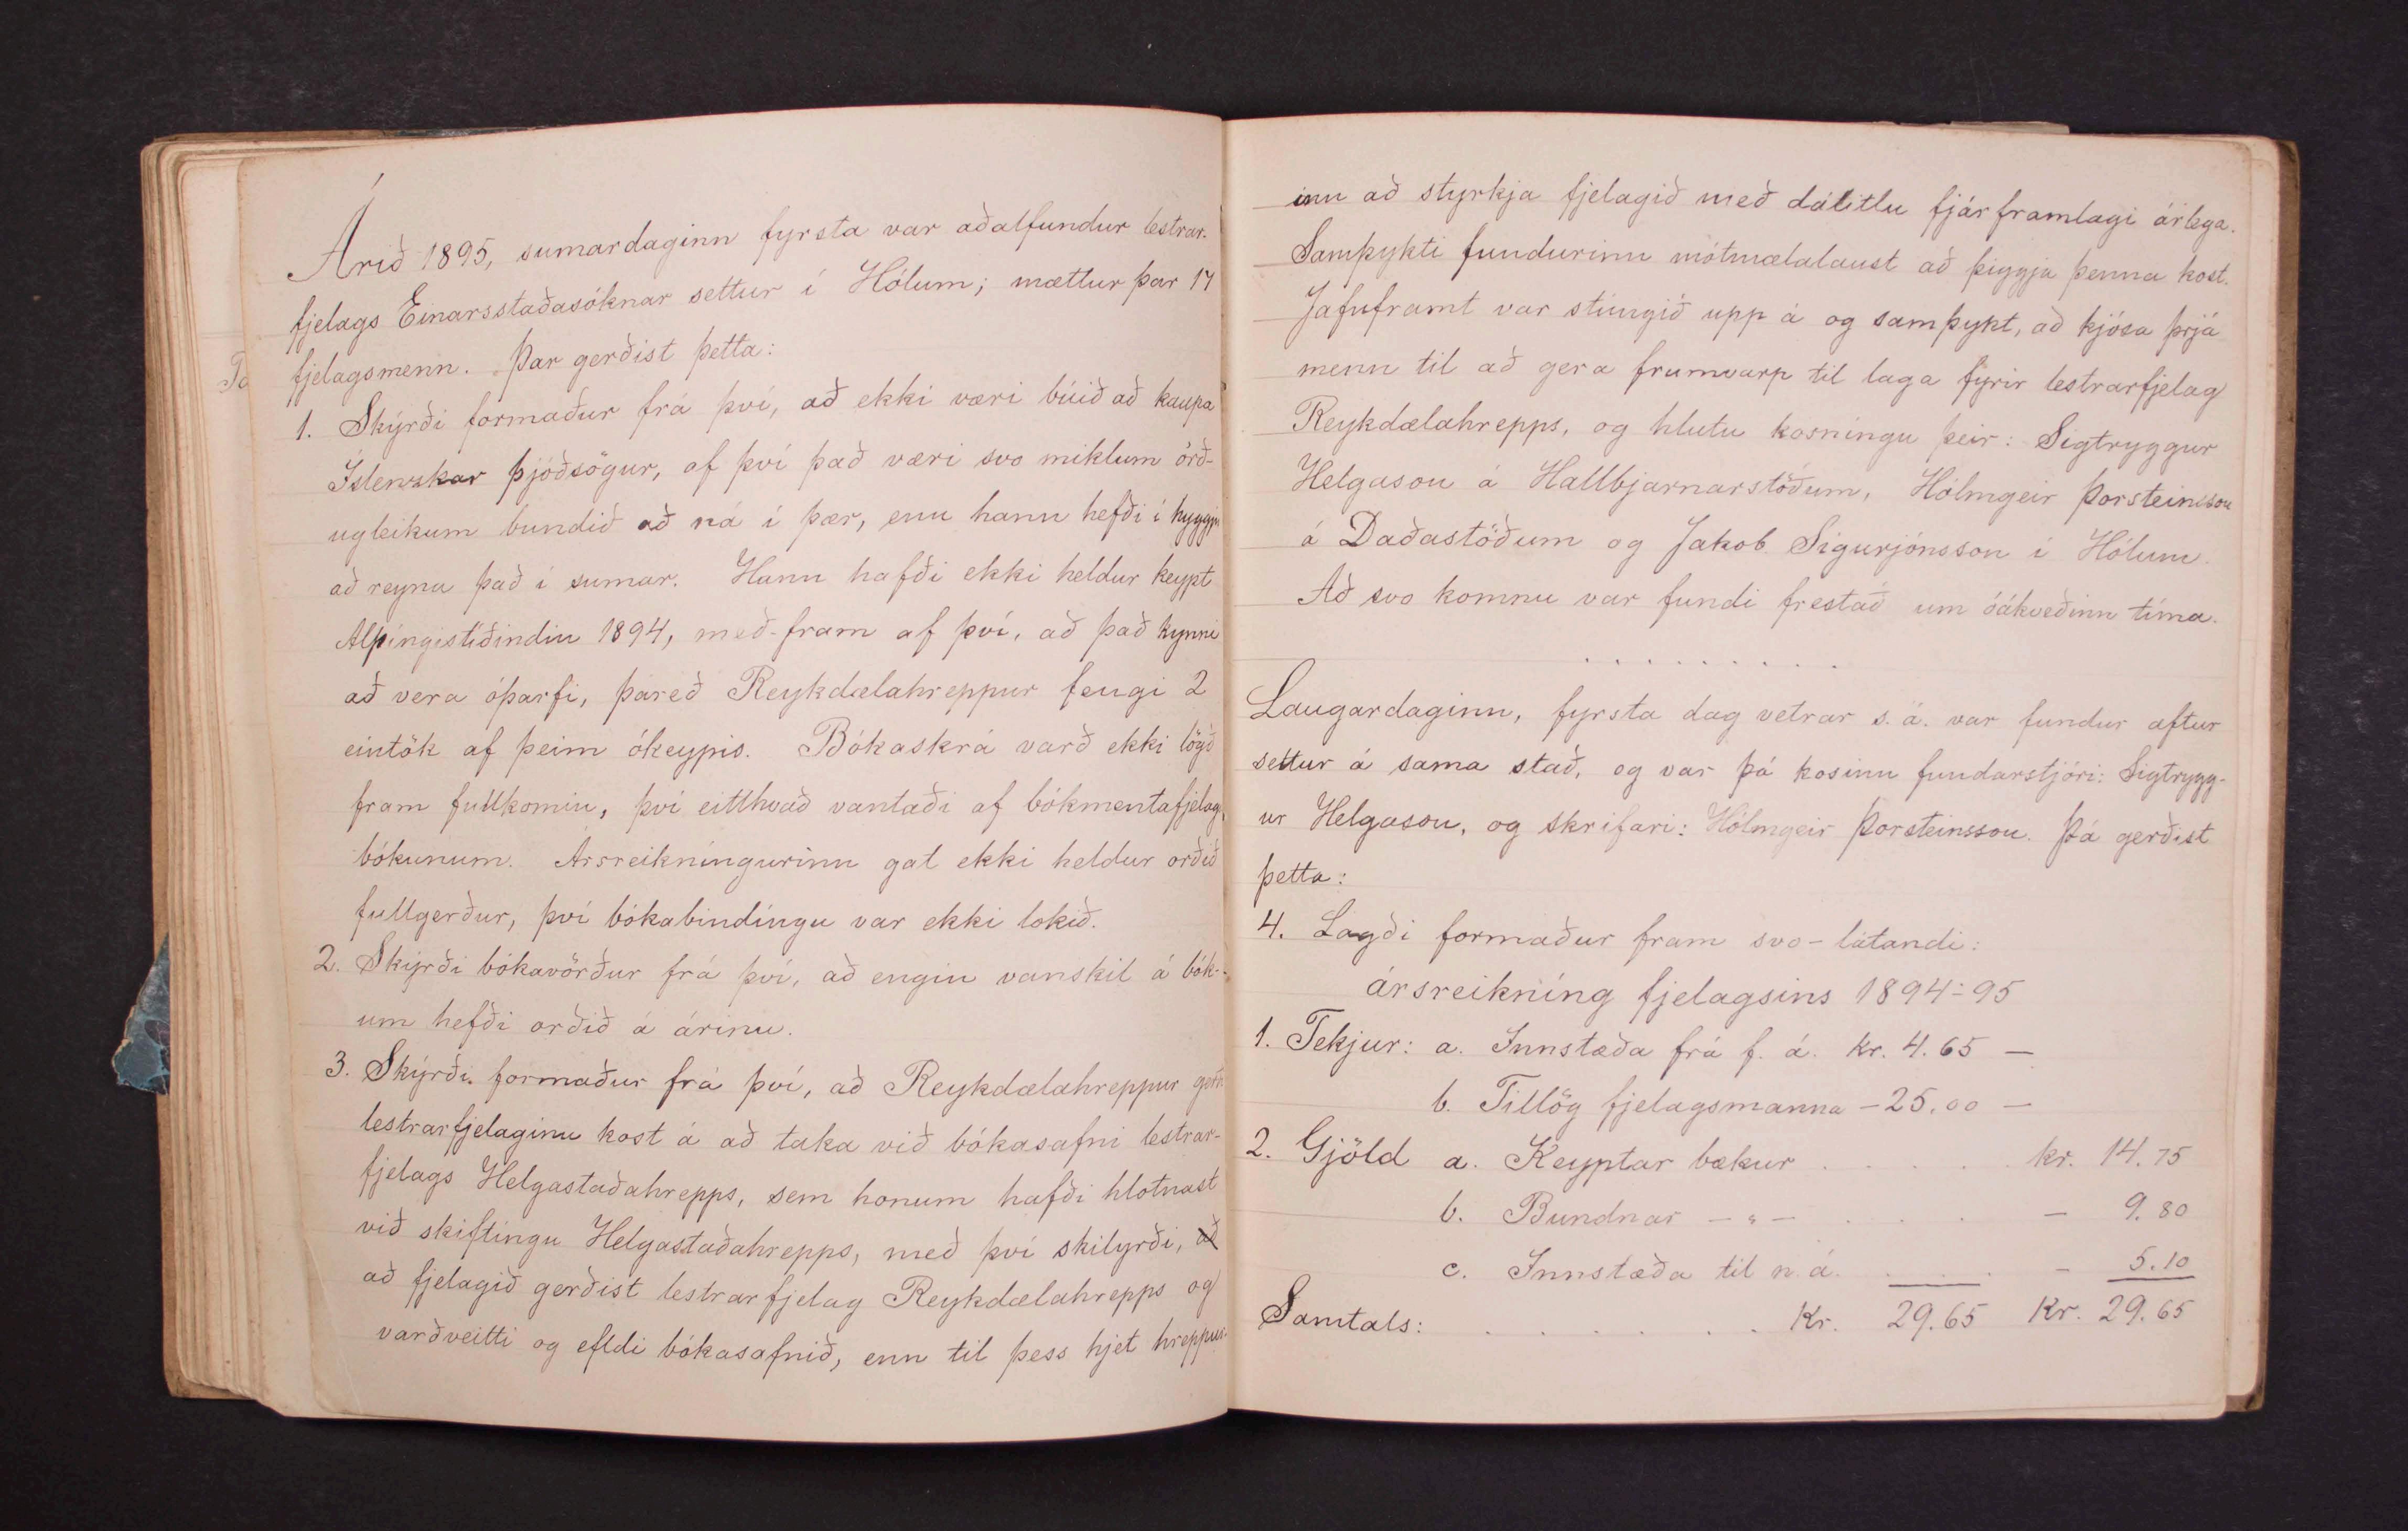 Árið 1895, sumardaginn fyrsta var aðalfundur lestrar-
fjelags Einarsstaðasóknar settur í Hólum; mættur þar 17
fjelagsmenn. Þar gerðist þetta:
1. Skýrði formaður frá því, að ekki væri búið að kaupa
Íslenzkar þjóðsögur, af því það væri svo miklum örð-
ugleikum bundið að ná í þær, enn hann hefði í hyggju
að reyna það í sumar. Hann hafði ekki heldur keypt
Alþíngistíðindin 1894, með-fram af því, að það kynni
að vera óþarfi, þareð Reykdælahreppur fengi 2
eintök af þeim ókeypis. Bókaskrá varð ekki lögð
fram fullkomin, því eitthvað vantaði af bókmentafjelags
bókunum. Ársreikníngurinn gat ekki heldur orðið
fullgerður, því bókabindíngu var ekki lokið.
2. Skýrði bókavörður frá því, að engin vanskil á bók-
um hefði orðið á árinu.
3. Skýrði formaður frá því, að Reykdælahreppur
lestrarfjelaginu kost á að taka við bókasafni lestrar-
fjelags Helgastaðahrepps, sem honum hafði hlotnast
við skiftíngu Helgastaðahrepps, með því skilyrði, að
að fjelagið gerðist lestrarfjelag Reykdælahrepps og
varðveitti og efldi bókasafnið, enn til þess hjet hreppur-
inn að styrkja fjelagið með dálitlu fjárframlagi árlega.
Samþykti fundurinn mótmælalaust að þiggja þenna kost.
Jafnframt var stúngið upp á og samþykt, að kjósa þrjá
menn til að gera frumvarp til laga fyrir lestrarfjelag
Reykdælahrepps, og hlutu kosníngu þeir: Sigtryggur
Helgason á Hallbjarnarstöðum, Hólmgeir Þorsteinsson
á Daðastöðum og Jakob Sigurjónsson í Hólum.
Að svo komnu var fundi frestað um óákveðinn tíma.
. . . . . . . . . .
Laugardaginn, fyrsta dag vetrar s. á. var fundur aftur
settur á sama stað, og var þá kosinn fundarstjóri: Sigtrygg-
ur Helgason, og skrifari: Hólmgeir Þorsteinsson. Þá gerðist
þetta:
4. Lagði formaður fram svo-látandi:
ársreikníng fjelagsins 1894-95
1. Tekjur: a. Innstæða frá f. á. kr. 4.65 —
b. Tillög fjelagsmanna — 25.00 —
2. Gjöld a. Keyptar bækur . . . . . kr. 14.75
b. Bundnar — " — . . . — 9.80
c. Innstæða til n. á. . . . — 5.10
Samtals: . . . . . . Kr. 29.65 Kr. 29.65